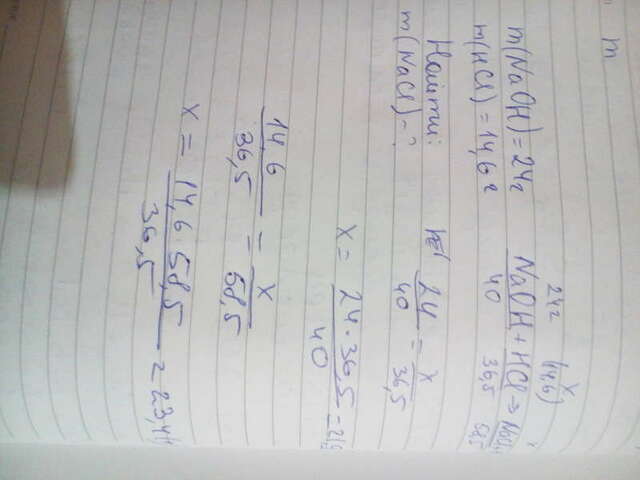 m
m(NaOH)=24г
m(HCl)=14,6г
Найти:
m(NaCl)-?
24г x
(14,6)
NaOH + HCl → NaCl
40 36,5 58,5
24/40 = x/36,5
x = 24·36,5/40 = 21,9
14,6/36,5 = x/58,5
x = 14,6·58,5/36,5 = 23,4